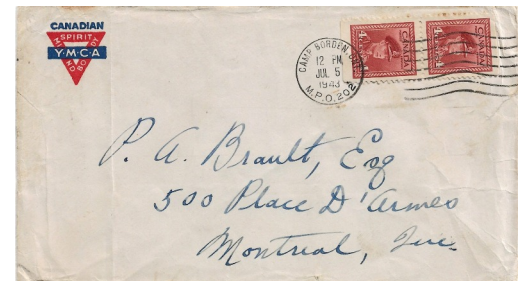 CANADIAN
SPIRIT
Y·M·C·A
MIND BODY
CAMP BORDEN, ONT.
12 PM
JUL 5
1943
M.P.O. 202
4 CANADA 4
4 CANADA 4
P. A. Brault, Esq
500 Place D'Armes
Montreal, Que.